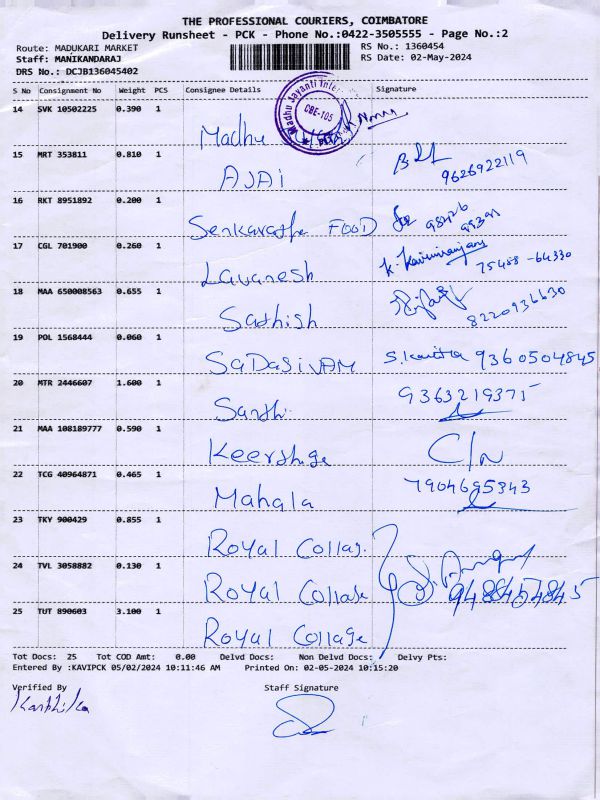 THE PROFESSIONAL COURIERS, COIMBATORE
Delivery Runsheet - PCK - Phone No.:0422-3505555 - Page No.:2
Route: MADUKARI MARKET RS No.: 1360454
Staff: MANIKANDARAJ RS Date: 02-May-2024
DRS No.: DCJB136045402
S No Consignment No Weight PCS Consignee Details Signature
Madhu Jayanti
CBE-105
14 SVK 10502225 0.390 1 Madhu
15 MRT 353811 0.810 1 AJAI 9626922119
16 RKT 8951892 0.200 1 FOOD
17 CGL 701900 0.260 1 Lavanesh 75488-64330
18 MAA 650008563 0.655 1 Sathish 8220936630
19 POL 1568444 0.060 1 SaDasivAM S.Kavitha 9360504845
20 MTR 2446607 1.600 1 Santhi 9363219375
21 MAA 108189777 0.590 1 C/n
22 TCG 40964871 0.465 1 Mahala 7904695343
23 TKY 900429 0.855 1 Royal Collag.
24 TVL 3058882 0.130 1 Royal Collage
25 TUT 890603 3.100 1 Royal Collage
Tot Docs: 25 Tot COD Amt: 0.00 Delvd Docs: Non Delvd Docs: Delvy Pts:
Entered By :KAVIPCK 05/02/2024 10:11:46 AM Printed On: 02-05-2024 10:15:20
Verified By Staff Signature
Karthika